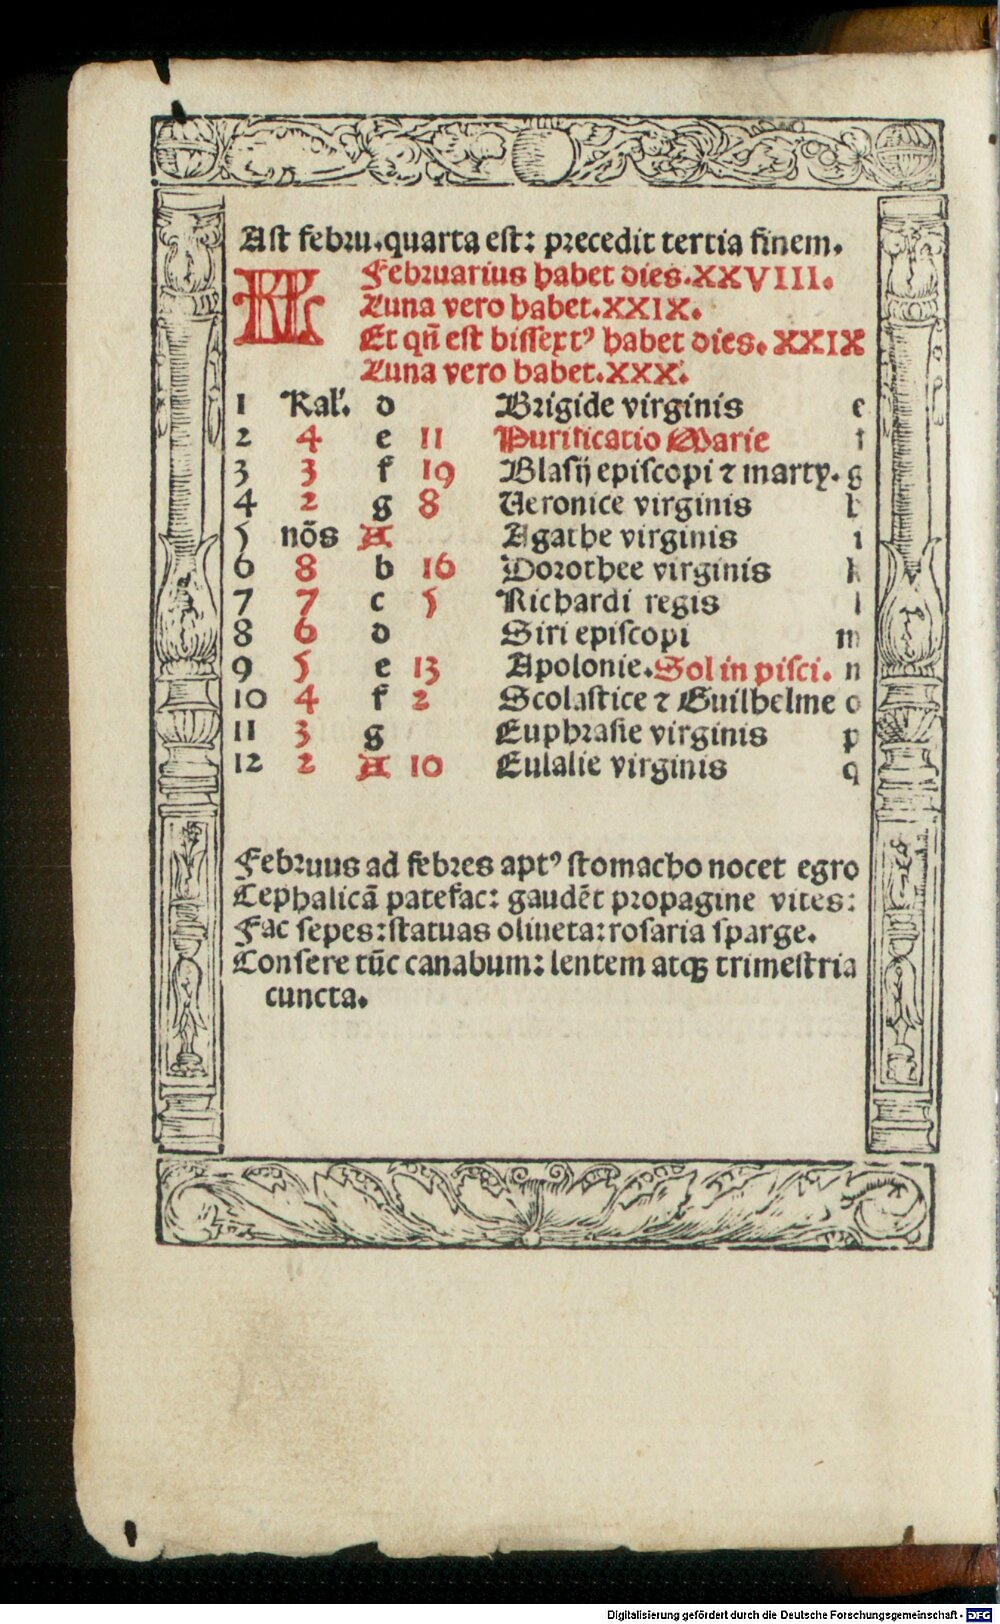 Ast febru. quarta est: precedit tertia finem.
KL Februarius habet dies. XXVIII.
Luna vero habet. XXIX.
Et qn̄ est bissextꝰ habet dies. XXIX
Luna vero habet. XXX.
1 Kal'. d Brigide virginis e
2 4 e 11 Purificatio Marie f
3 3 f 19 Blasij episcopi ⁊ marty. g
4 2 g 8 Veronice virginis h
5 nōs A Agathe virginis i
6 8 b 16 Dorothee virginis k
7 7 c 5 Richardi regis l
8 6 d Siri episcopi m
9 5 e 13 Apolonie. Sol in pisci. n
10 4 f 2 Scolastice ⁊ Guilhelme o
11 3 g Euphrasie virginis p
12 2 A 10 Eulalie virginis q
Februus ad febres aptꝰ stomacho nocet egro
Cephalicā patefac: gaudēt propagine vites:
Fac sepes: statuas oliueta: rosaria sparge.
Consere tūc canabum: lentem atqꝫ trimestria
cuncta.
Digitalisierung gefördert durch die Deutsche Forschungsgemeinschaft - DFG